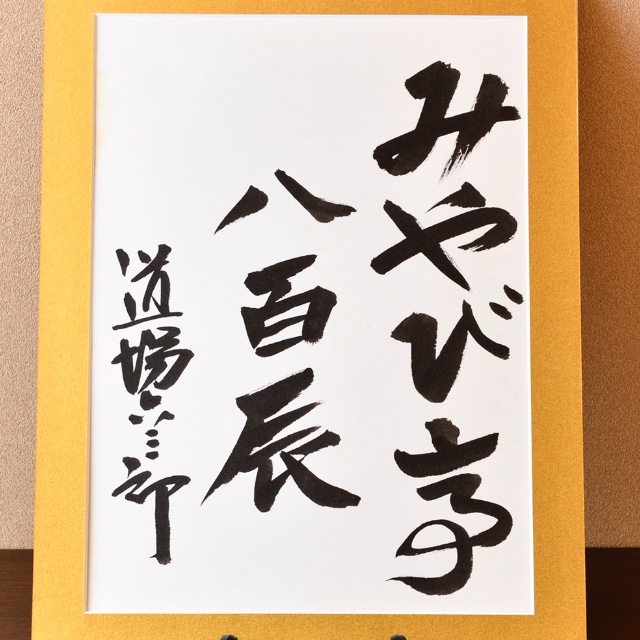 みやび亭
八百辰
道場六三郎